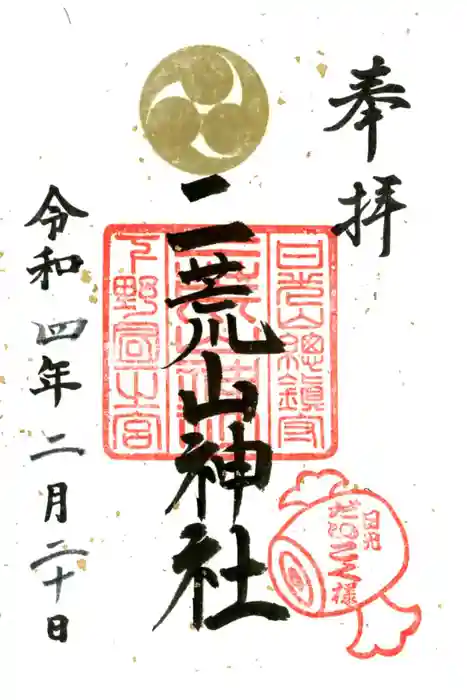 奉拝
二荒山神社
日光山總鎮守
下野國一之宮
日光
だいこく様
令和四年二月二十日